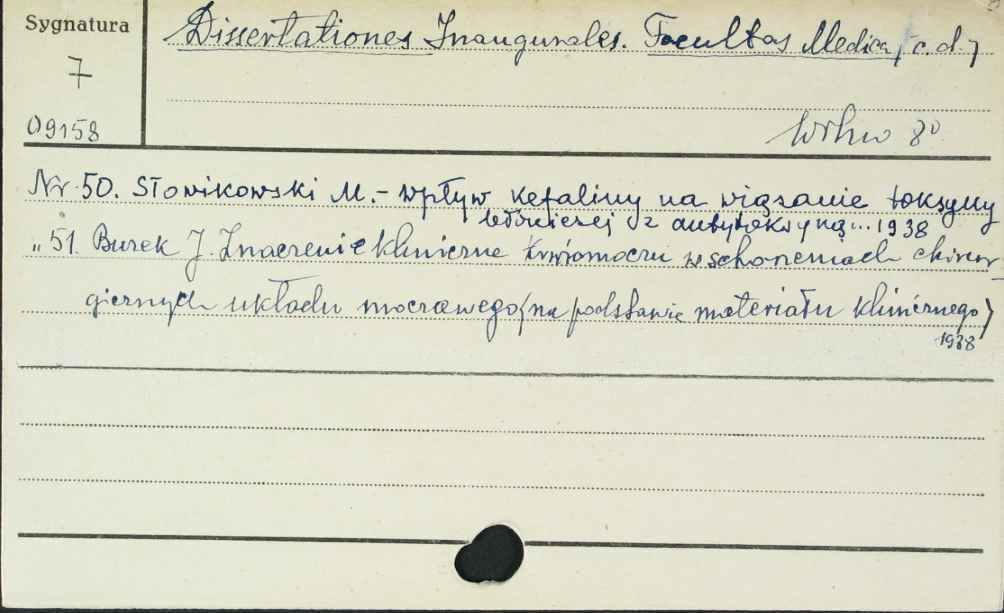 Sygnatura
Dissertationes Inaugurales. Facultas Medica, c. d. 7
7
09158
Wilno 8°
Nr 50. Słonikowski M. - Wpływ kefaliny na wiązanie toksyny
błoniczej z antytoksyną... 1938
„ 51. Burek J. Znaczenie kliniczne krwiomoczu w schorzeniach chirur-
gicznych układu moczowego (na podstawie materiału klinicznego)
1938